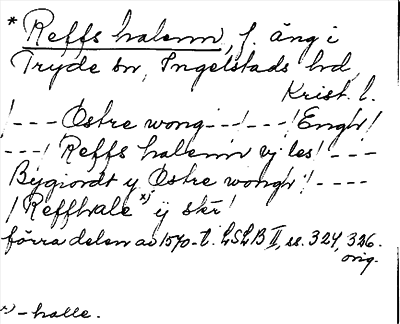 * Reffs halenn, f. äng i
Tryde sn, Ingelstads hd,
Krist. l.
/ --- Østre wong --- / --- / Engh /
--- / Reffs halenn vj les / ---
Bygiordt y Østre wongh / ----
/ Reffhale x) ij sk̄r /
förra delen av 1570-t. LSLB II, ss. 324, 326.
orig.
x) -halle.